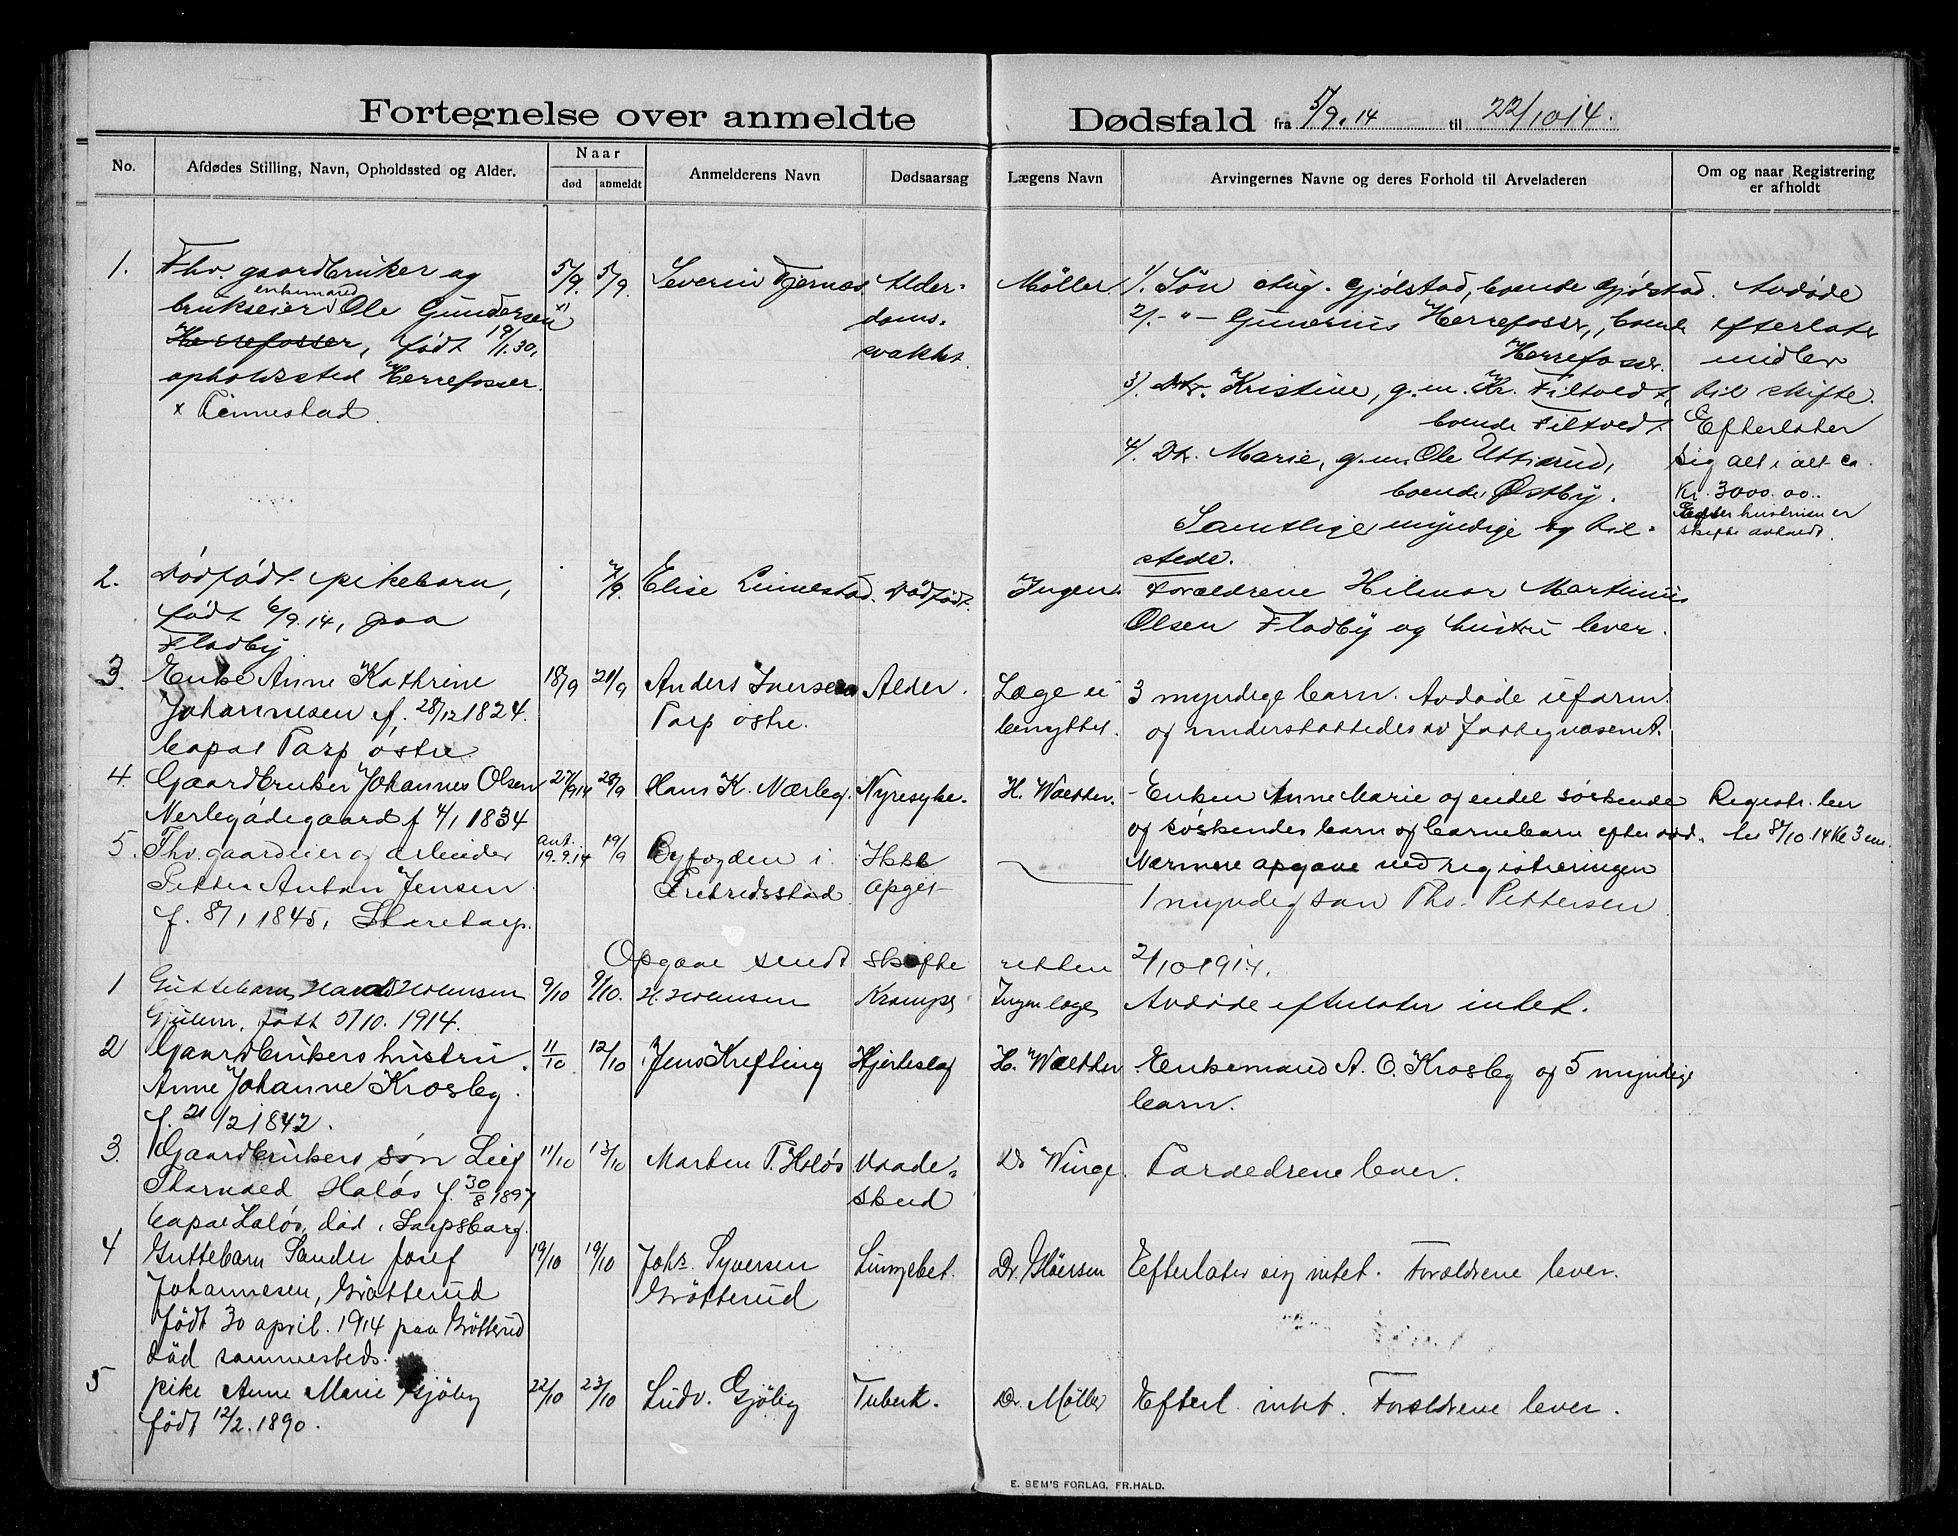 Fortegnelse over anmeldte Dødsfald fra 5/9.14 til 22/10 14.
No.
Afdødes Stilling, Navn, Opholdssted og Alder.
Naar
død
anmeldt
Anmelderens Navn
Dødsaarsag
Lægens Navn
Arvingernes Navne og deres Forhold til Arveladeren
Om og naar Registrering
er afholdt
1.
Fhv. gaardbruker og
enkemand
brukseier Ole Gundersen x)
Herrefosser, født 19/1.30,
opholdssted Herrefosser.
x Tennestad.
5/9.
5/9.
Severin Fjernes
Alder-
doms-
svakhet.
Møller.
1). Søn Aug. Gjølstad, boende Gjølstad.
2). - " - Gunerius Herrefosser, boende
Herrefosser.
3). Dtr. Kristine, g.m. Kr. Filtvedt,
boende Filtvedt
4). Dt. Marie, g.m. Ole Uttirud,
boende Østby.
Samtlige myndige og til-
stede.
Avdøde
efterlater
midler
til skifte.
Efterlater
sig alt i alt ca.
Kr. 3000.00..
Efter hustruen er
skifte avholdt.
2.
Dødfødt pikebarn,
født 6/9.14, paa
Fladby
7/9.
Elise Linnestad.
Dødfødt.
Ingen.
Forældrene Hilmar Martinius
Olsen Fladby og hustru lever.
3.
Enke Anne Kathrine
Johannesen f. 28/12 1824.
bopæl Torp østre.
18/9
21/9
Anders Iversen
Torp østre.
Alder.
Læge ei
benyttet.
3 myndige barn. Avdøde uform.
og understøttedes av fattigvæsenet.
4.
Gaardbruker Johannes Olsen
Nerbyødegaard f 4/1 1834
27/9 14
28/9
Hans K. Nærby.
Nyresyke.
H. Walther.
Enken Anne Marie og endel søskende
og søskendes barn og barnebarn efter død.
Nærmere opgave ved registreringen
Registr. ber
ta 8/10.14 Kl 3 em.
5.
Fhv. gaardeier og arbeider
Petter Anton Jensen
f. 8/1 1845, Staretorp.
ant.
19.9.14
19/9
Byfogden i
Fredriksstad
Ikke
opgit
1 myndig søn Thv. Pettersen
Opgave sendt skifteretten 2/10 1914.
1
Guttebarn Harald Hansen
Gjulem, født 5/10. 1914.
9/10
9/10.
H. Hansen
Krampe
Ingen læge
Avdøde efterlater intet.
2
Gaardbrukers hustru
Anne Johanne Krosby.
f. 21/12 1842.
11/10
12/10
Jens Krefting
Hjerteslag
H. Walther
Enkemand A. O. Krosby og 5 myndige
barn.
3.
Gaardbrukers søn Leif
Thorvald Haløs f. 30/8 1897
bopæl Haløs, død i Sarpsborg.
11/10
13/10
Morten T. Haløs
Vaade-
skud
Dr Winge.
Forældrene lever.
4
Guttebarn Sander Josef
Johannesen, Grøtterud
født 30 april. 1914 paa Grøtterud
død sammesteds.
19/10
19/10
Johs. Syversen
Grøtterud
Lungebet.
Dr. Gløersen
Efterlater sig intet. Forældrene lever.
5
pike Anne Marie Gjølby
født 12/2. 1890.
22/10
23/10
Ludv. Gjølby
Tuberk.
Dr. Møller
Efterl. intet. Forældrene lever.
E. SEM'S FORLAG, FR.HALD.